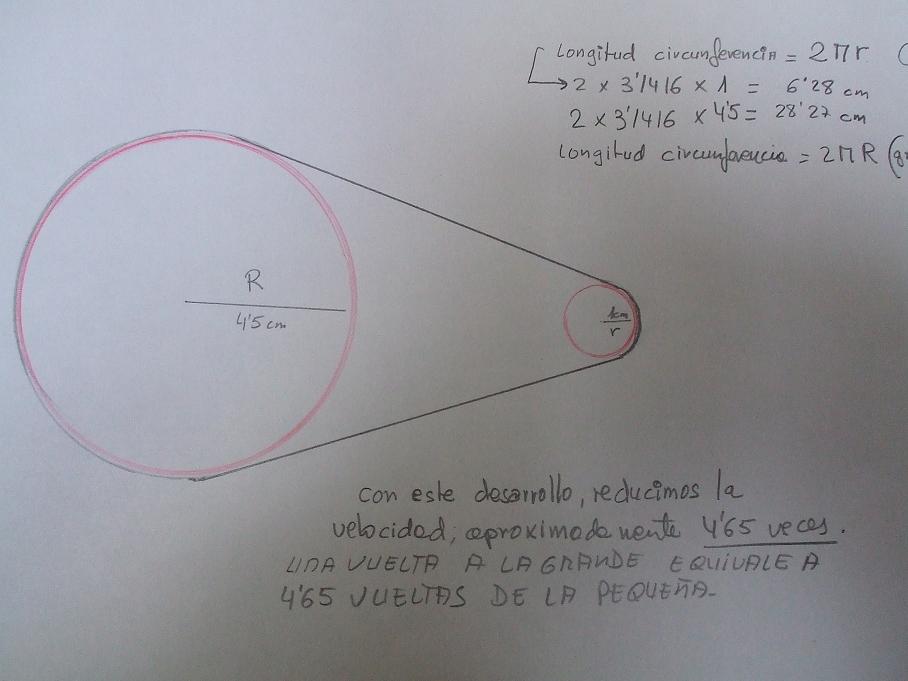 Longitud circunferencia = 2πr (
2 x 3'1416 x 1 = 6'28 cm
2 x 3'1416 x 4'5 = 28'27 cm
Longitud circunferencia = 2πR
R
4'5 cm
1cm
r
con este desarrollo, reducimos la
velocidad, aproximadamente 4'65 veces.
UNA VUELTA A LA GRANDE EQUIVALE A
4'65 VUELTAS DE LA PEQUEÑA-